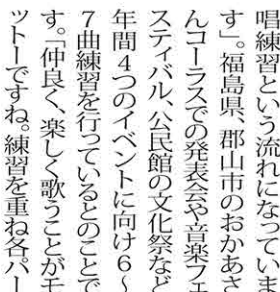 唱練習という流れになっていま
す」。福島県、郡山市のおかあさ
んコーラスでの発表会や音楽フェ
スティバル、公民館の文化祭など
年間4つのイベントに向け6〜
7曲練習を行っているとのことで
す。「仲良く、楽しく歌うことがモ
ットーですね。練習を重ね各パー